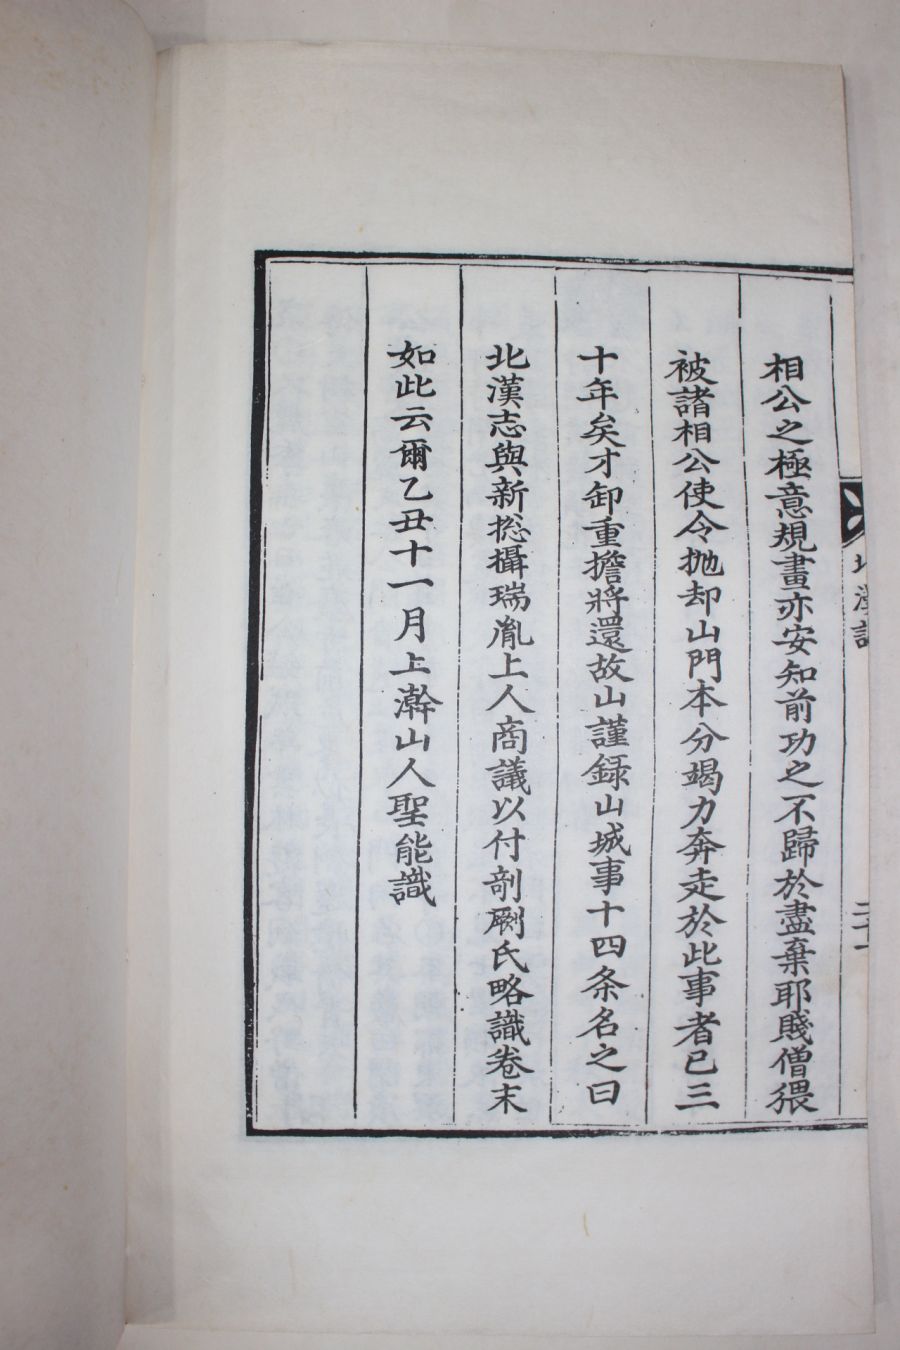 相公之極意規畫亦安知前功之不歸於盡棄耶賤僧猥
被諸相公使令抛却山門本分竭力奔走於此事者已三
十年矣才卸重擔將還故山謹録山城事十四条名之曰
北漢志與新捴攝瑞胤上人商議以付剞劂氏略識卷末
如此云爾乙丑十一月上澣山人聖能識